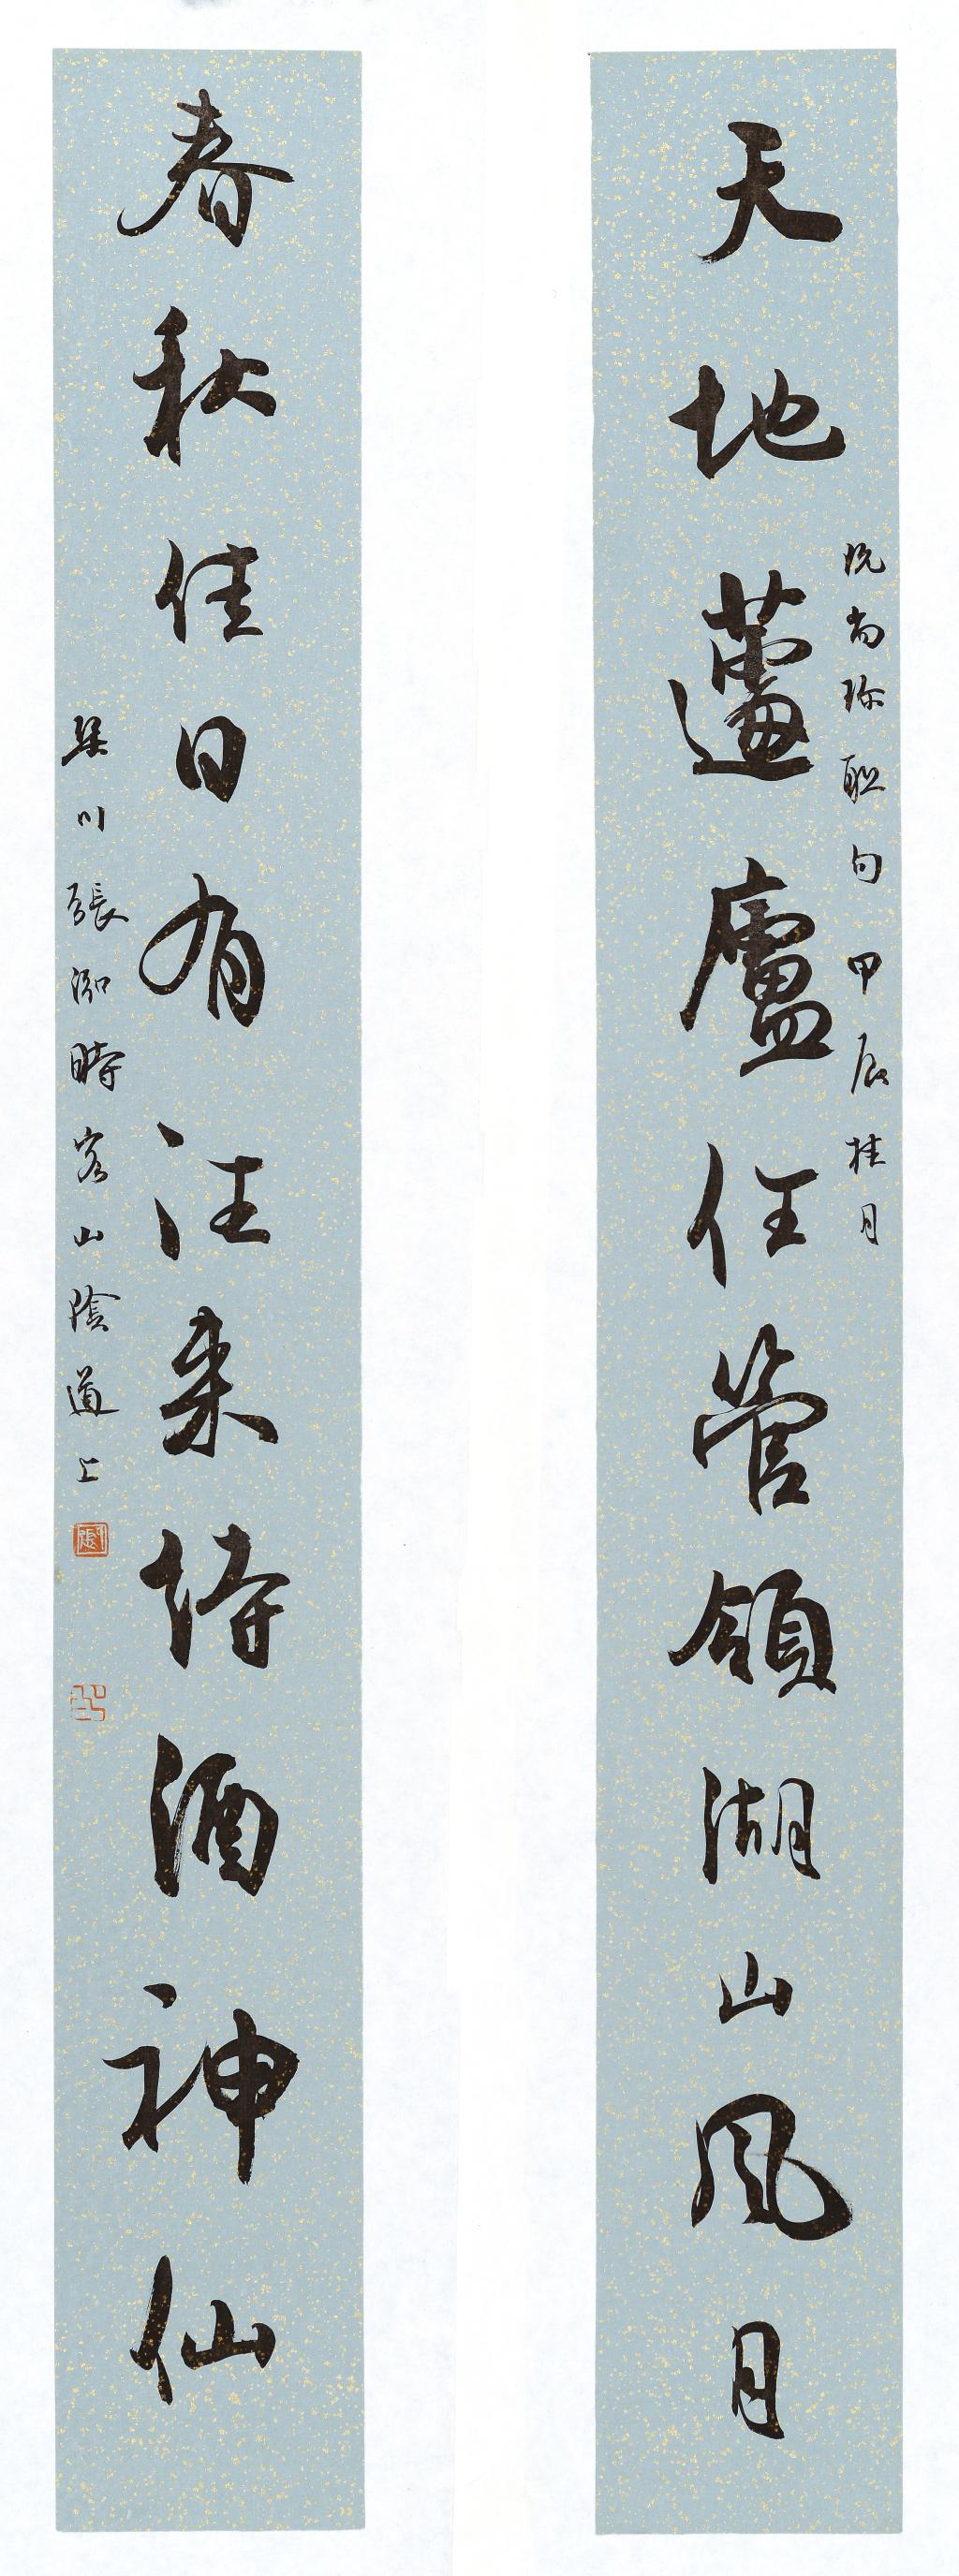 天地蘧廬任管領湖山風月
阮尚珍聯句甲辰桂月
春秋佳日有往来詩酒神仙
張泓時客山陰道上